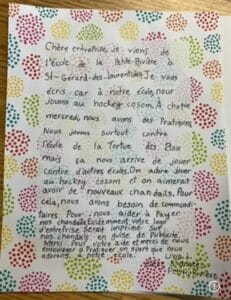 Chère entreprise, je viens de
l'école de la Petite-Rivière à
St-Gérard-des-laurentides. Je vous
écris car à notre école, nous
jouons au hockey cosom. À chaque
mercredi, nous avons des Pratiques.
Nous jouons surtout contre
l'école de la Tortue des Bois
mais sa nous arrive de jouer
contre d'autres écoles. On adore jouer
au hockey cosom et on aimerait
avoir de nouveaux chandails. Pour
cela, nous avons besoin de commandi-
taires. Pour nous aider à Payer
nos chandails. Evidemment votre logo
d'entreprise serait imprimer sur
nos chandails en guise de Publicité.
Merci Pour votre aide et merci de nous
encourager à Pratiquer un sport que nous
adorons. école
Petite-Rivière